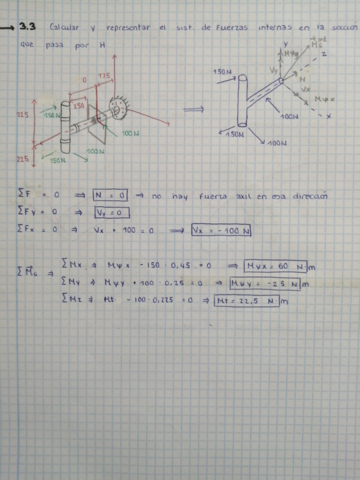 → 3.3 Calcular y representar el sist. de fuerzas internas en la sección
que pasa por H
0 175
150
325
225
150N
100N
100N
150N
⇒
150N
Vy
y
z
N
Vx
x
100N
150N
100N
ΣF = 0 ⇒ N = 0 → no hay fuerza axil en esa dirección
ΣFy = 0 ⇒ Vy = 0
ΣFx = 0 ⇒ Vx + 100 = 0 ⟹ Vx = - 100 N
ΣMx ⇒ Mψx - 150 · 0,45 = 0 ⇒ Mψx = 60 N m
ΣMy ⇒ Mψy + 100 · 0.25 = 0 ⇒ Mψy = -25 N m
ΣMz ⇒ Mt - 100 · 0.225 = 0 ⇒ Mt = 22,5 N m